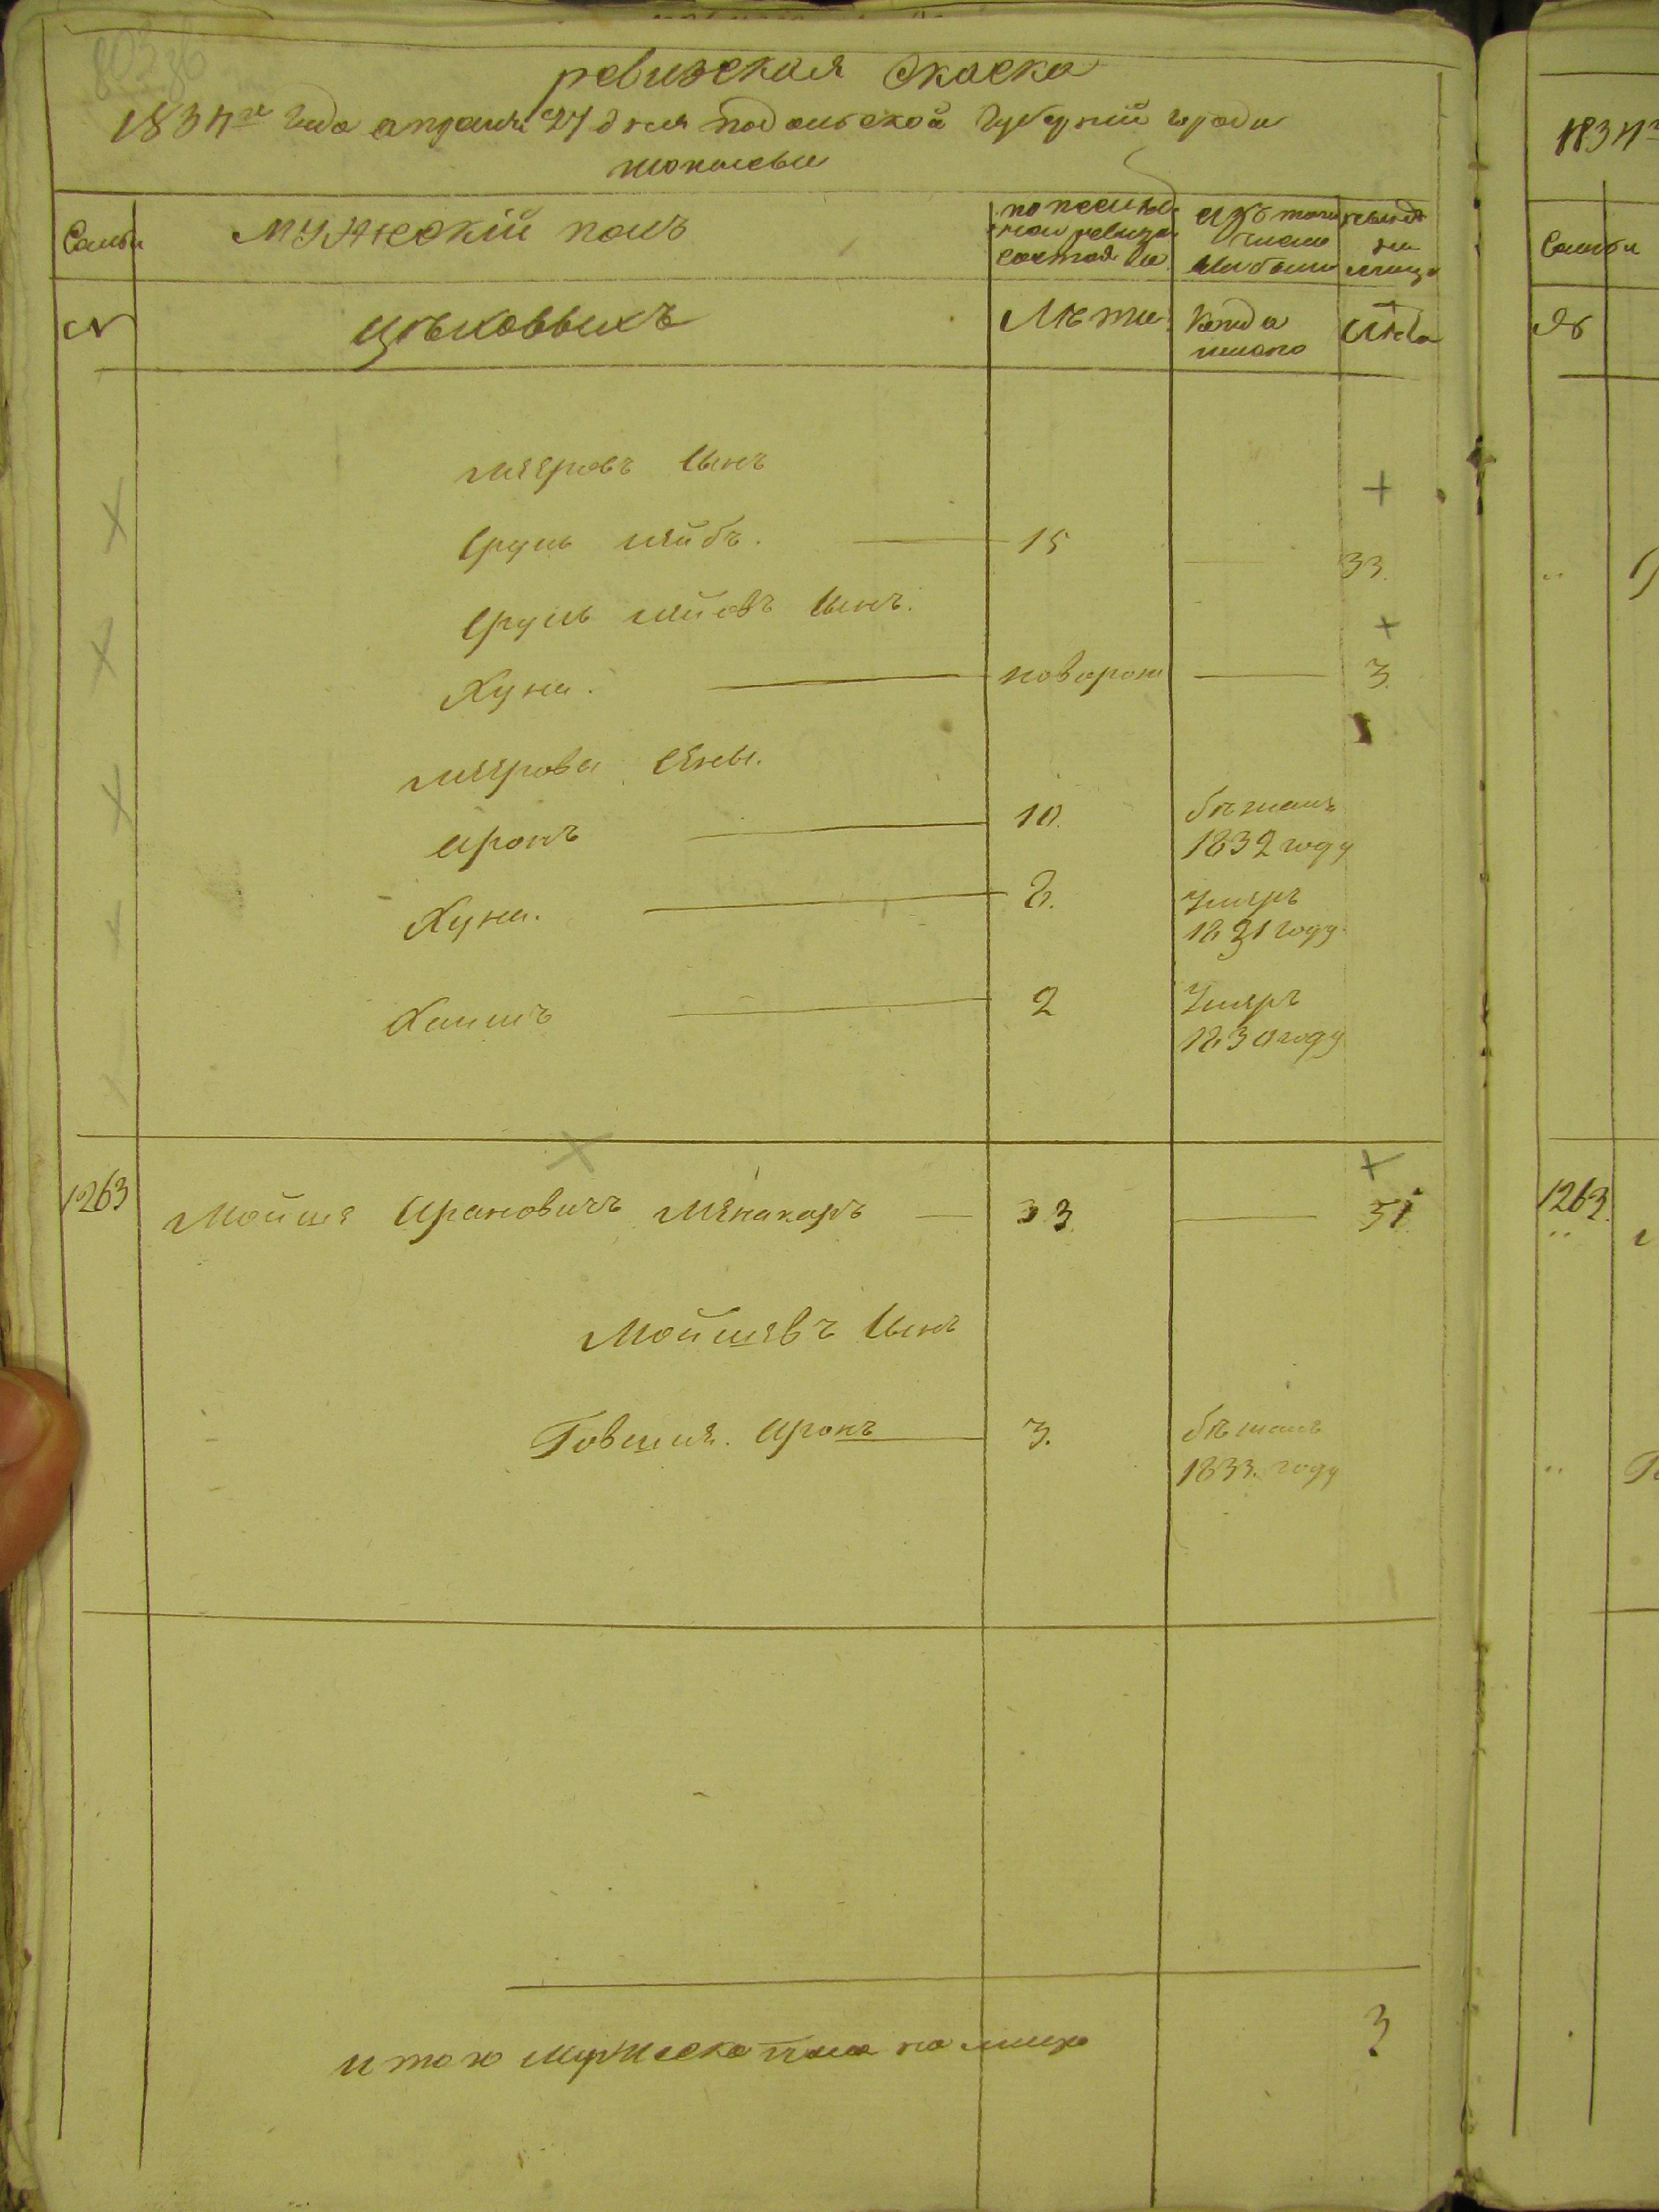 ревизская скаска
1834го года апреля 27 дня подольской губерний города
могилева
Семьи
мужескій полъ
по послед
ней ревизи
состояло
Изъ того
числа
выбыло
ныне
на
лицо
Семьи
№
цеховвыхъ
Лета
Когда
имено
Лета
№
мееровъ сынъ
Сруль лейбъ. 15 33.
Сруль лейбовъ сынъ.
Хуна. новорож 3
меерова сыны.
аронъ 10. бежалъ
1832 году
Хуна. 8. Умеръ
1831 году
Хаимъ 2 Умеръ
1830 году
1263 Мойше Ароновичъ 33 51
1263
Мойшевъ сынъ
Говшия. аронъ 3. бежалъ
1833. году
итого мужеска пола на лицо 3